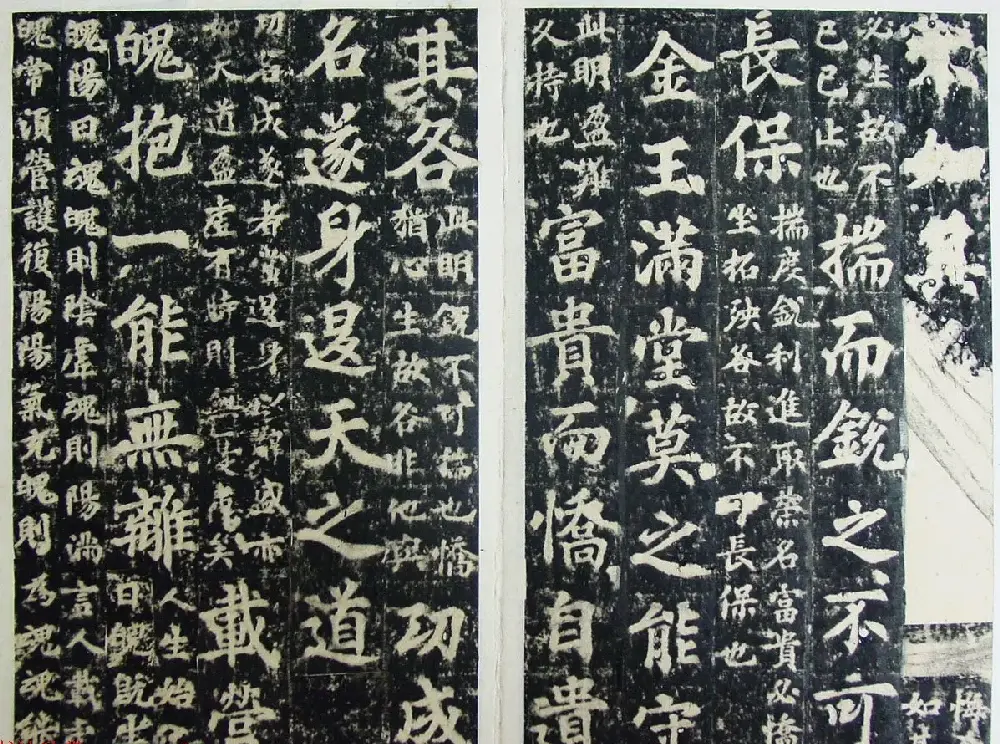 如其
必生故不
已已止也
揣而銳之不可
長保
揣度銳利進取榮名富貴必憍
坐招殃咎故不可長保也
金玉滿堂莫之能守
此明盈難
久持也
富貴而憍自遺
其咎
此明銳不可揣也憍
猶心生故咎非他與
功成
名遂身退天之道
功名成遂者當退身以辭盛亦
如天道盈虛有時則無憂患矣
載營
魄抱一能無離
人生始化
曰魄既生
魄陽曰魂魄則陰虛魂則陽滿言人載虛
魄常須營護復陽陽氣充魄則為魂魂能